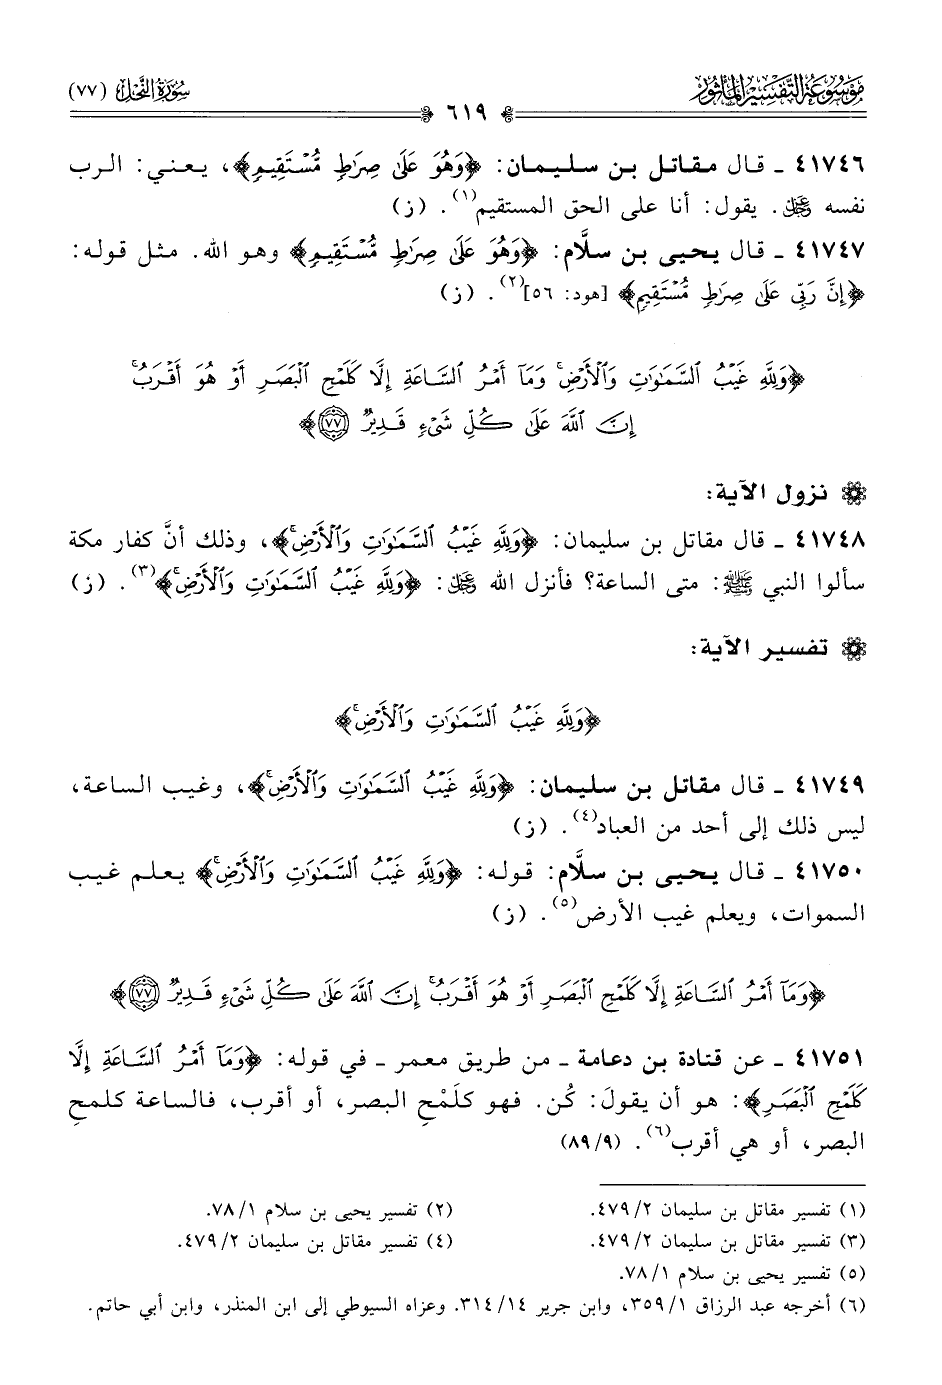 مَوْسُوعَة التَّفْسِير المَأْثُور
سُورَةُ النَّحْل (٧٧)
٦١٩
٤١٧٤٦ ـ قال مقاتل بن سليمان: ﴿وَهُوَ عَلَىٰ صِرَٰطٖ مُّسۡتَقِيمٖ﴾، يعني: الرب
نفسه ﷻ. يقول: أنا على الحق المستقيم(١). (ز)
٤١٧٤٧ ـ قال يحيى بن سلَّام: ﴿وَهُوَ عَلَىٰ صِرَٰطٖ مُّسۡتَقِيمٖ﴾ وهو الله. مثل قوله:
﴿إِنَّ رَبِّي عَلَىٰ صِرَٰطٖ مُّسۡتَقِيمٖ﴾ [هود: ٥٦](٢). (ز)
﴿وَلِلَّهِ غَيۡبُ ٱلسَّمَٰوَٰتِ وَٱلۡأَرۡضِۚ وَمَآ أَمۡرُ ٱلسَّاعَةِ إِلَّا كَلَمۡحِ ٱلۡبَصَرِ أَوۡ هُوَ أَقۡرَبُۚ
إِنَّ ٱللَّهَ عَلَىٰ كُلِّ شَيۡءٖ قَدِيرٞ ٧٧﴾
نزول الآية:
٤١٧٤٨ ـ قال مقاتل بن سليمان: ﴿وَلِلَّهِ غَيۡبُ ٱلسَّمَٰوَٰتِ وَٱلۡأَرۡضِۚ﴾، وذلك أنَّ كفار مكة
سألوا النبي ﷺ: متى الساعة؟ فأنزل الله ﷻ: ﴿وَلِلَّهِ غَيۡبُ ٱلسَّمَٰوَٰتِ وَٱلۡأَرۡضِۚ﴾(٣). (ز)
تفسير الآية:
﴿وَلِلَّهِ غَيۡبُ ٱلسَّمَٰوَٰتِ وَٱلۡأَرۡضِۚ﴾
٤١٧٤٩ ـ قال مقاتل بن سليمان: ﴿وَلِلَّهِ غَيۡبُ ٱلسَّمَٰوَٰتِ وَٱلۡأَرۡضِۚ﴾، وغيب الساعة،
ليس ذلك إلى أحد من العباد(٤). (ز)
٤١٧٥٠ ـ قال يحيى بن سلَّام: قوله: ﴿وَلِلَّهِ غَيۡبُ ٱلسَّمَٰوَٰتِ وَٱلۡأَرۡضِۚ﴾ يعلم غيب
السموات، ويعلم غيب الأرض(٥). (ز)
﴿وَمَآ أَمۡرُ ٱلسَّاعَةِ إِلَّا كَلَمۡحِ ٱلۡبَصَرِ أَوۡ هُوَ أَقۡرَبُۚ إِنَّ ٱللَّهَ عَلَىٰ كُلِّ شَيۡءٖ قَدِيرٞ ٧٧﴾
٤١٧٥١ ـ عن قتادة بن دعامة ـ من طريق معمر ـ في قوله: ﴿وَمَآ أَمۡرُ ٱلسَّاعَةِ إِلَّا
كَلَمۡحِ ٱلۡبَصَرِ﴾: هو أن يقولَ: كُن. فهو كلَمْحِ البصر، أو أقرب، فالساعة كلمحِ
البصر، أو هي أقرب(٦). (٨٩/٩)
(١) تفسير مقاتل بن سليمان ٤٧٩/٢.
(٢) تفسير يحيى بن سلام ٧٨/١.
(٣) تفسير مقاتل بن سليمان ٤٧٩/٢.
(٤) تفسير مقاتل بن سليمان ٤٧٩/٢.
(٥) تفسير يحيى بن سلام ٧٨/١.
(٦) أخرجه عبد الرزاق ٣٥٩/١، وابن جرير ٣١٤/١٤. وعزاه السيوطي إلى ابن المنذر، وابن أبي حاتم.